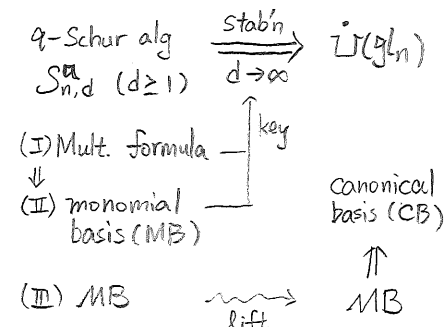 q-Schur alg stab'n U̇(gl_n)
S^a_{n,d} (d≥1) d→∞
(I) Mult. formula key
⇓
(II) monomial basis (MB)
canonical basis (CB)
⇑
(III) MB lift MB